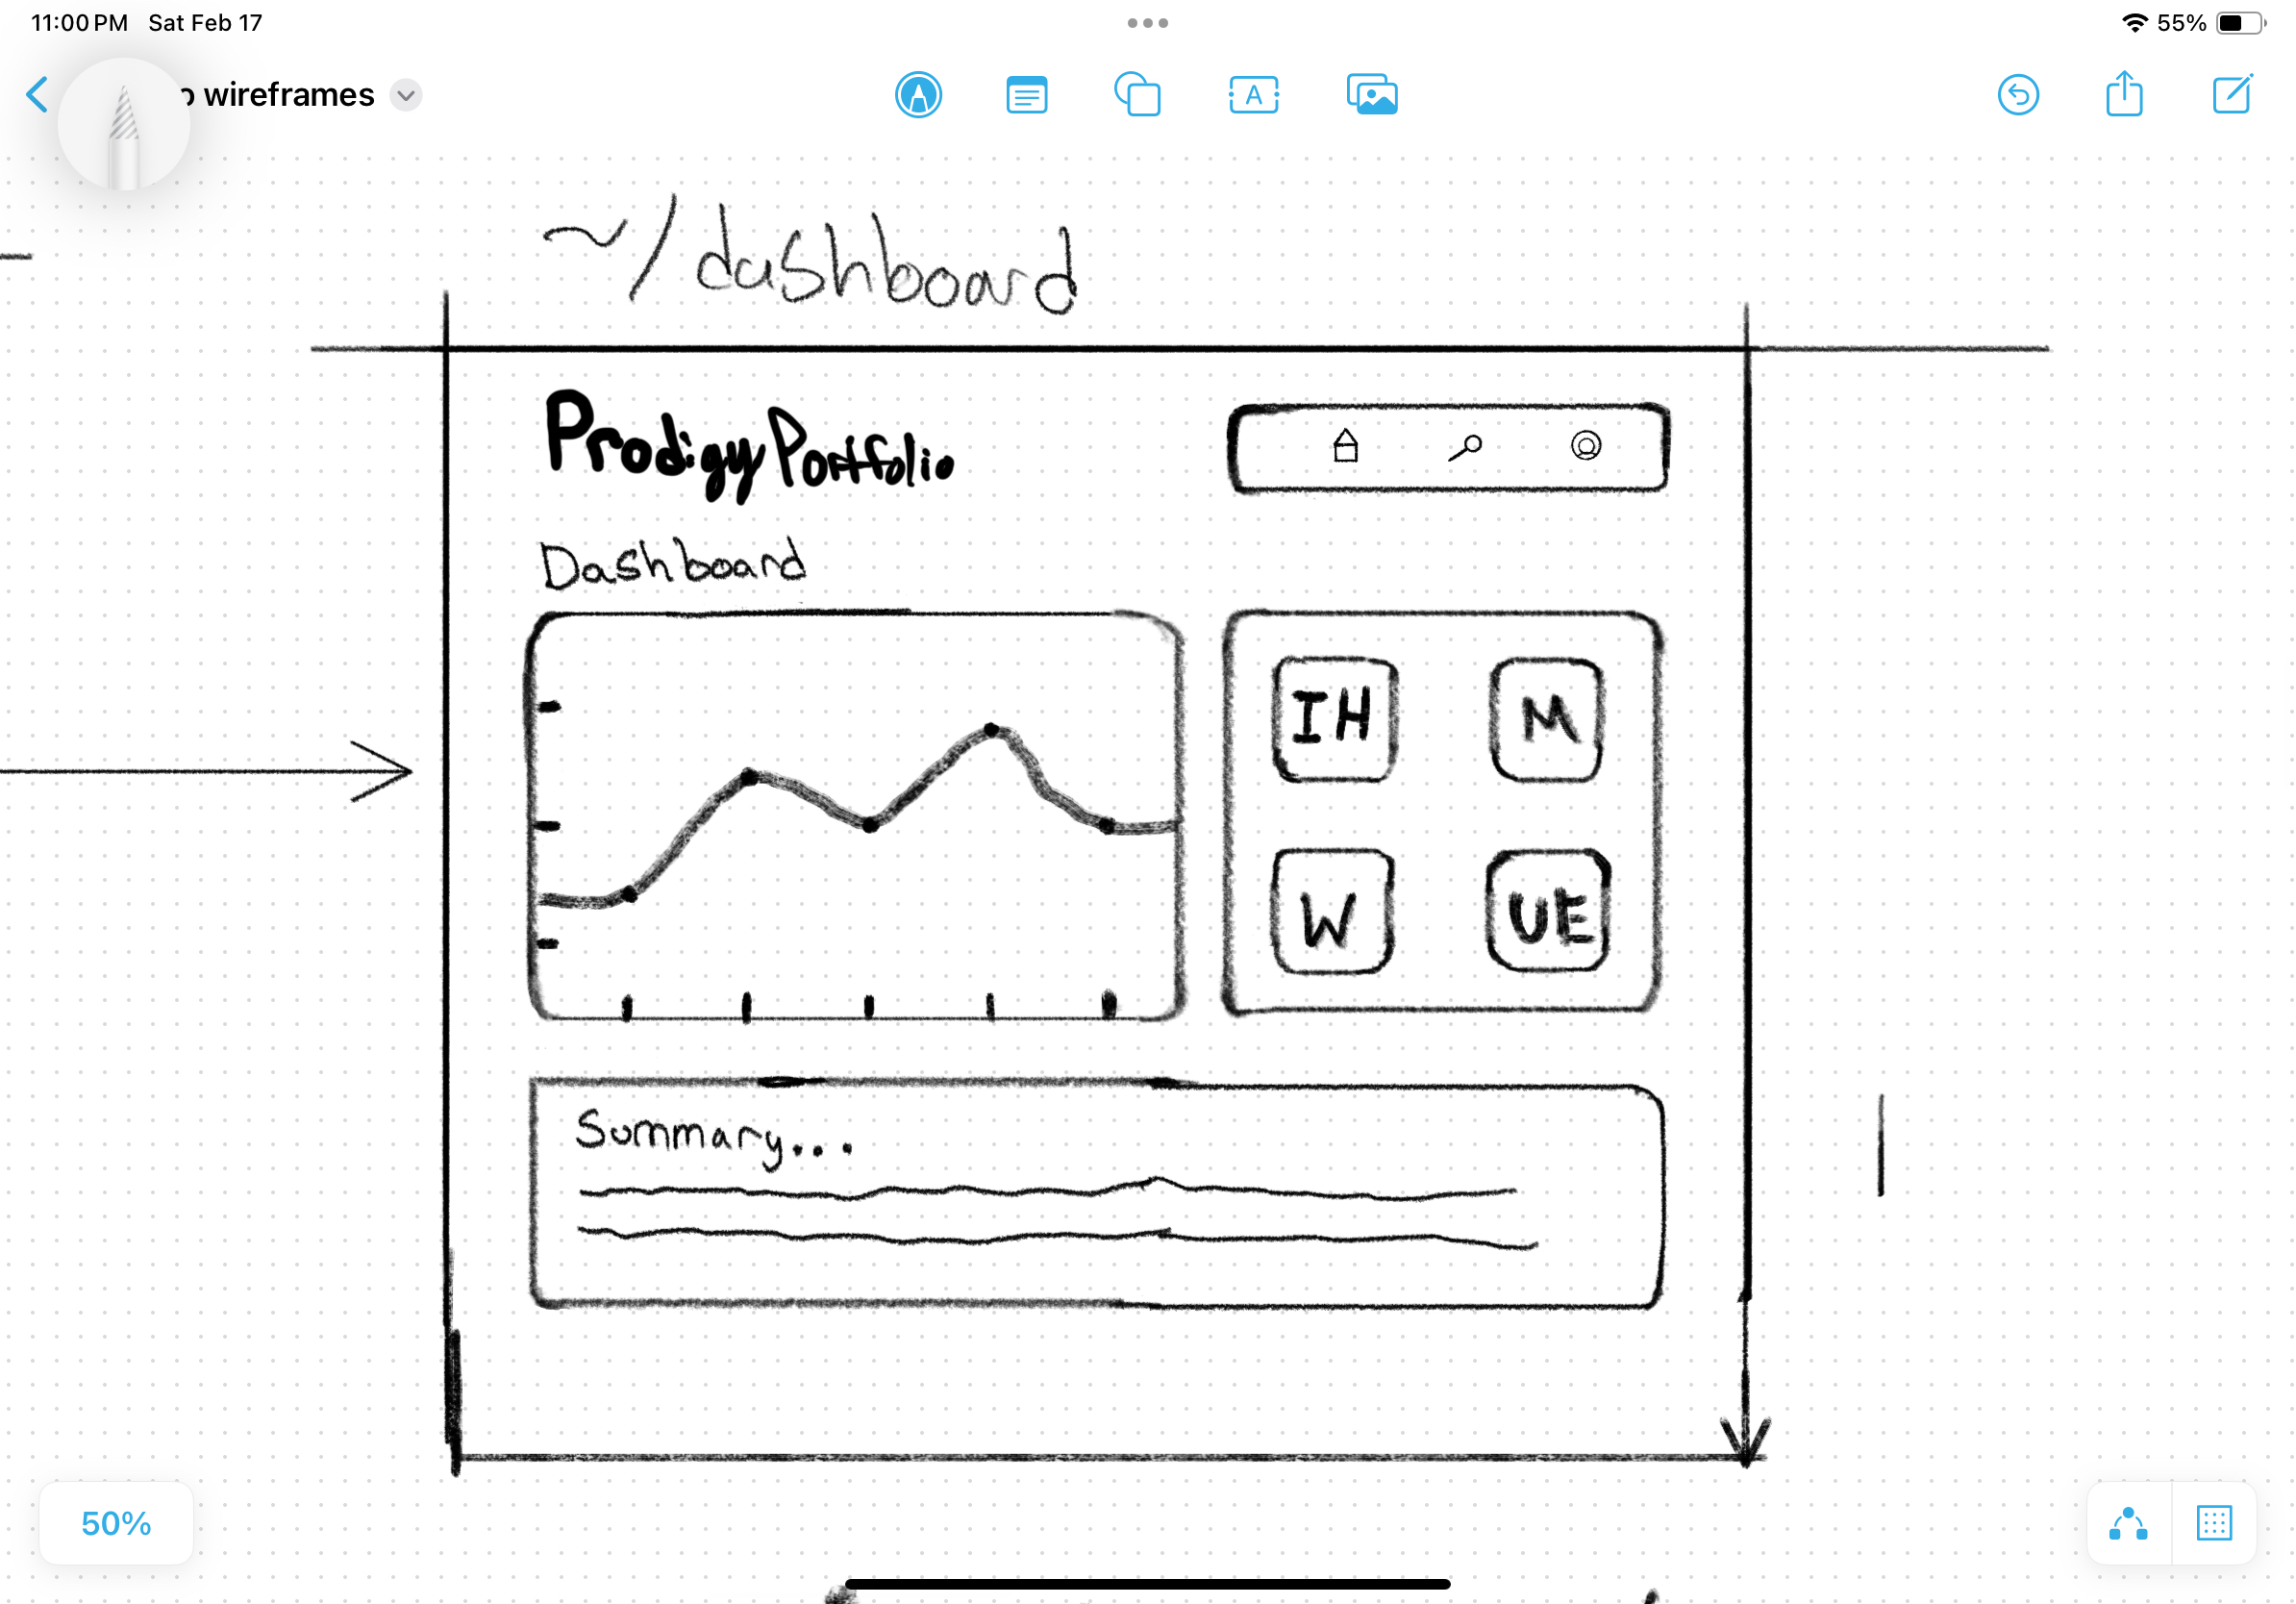 11:00 PM Sat Feb 17
55%
o wireframes
A
~/dashboard
Prodigy Portfolio
Dashboard
IH
M
W
UE
Summary...
50%